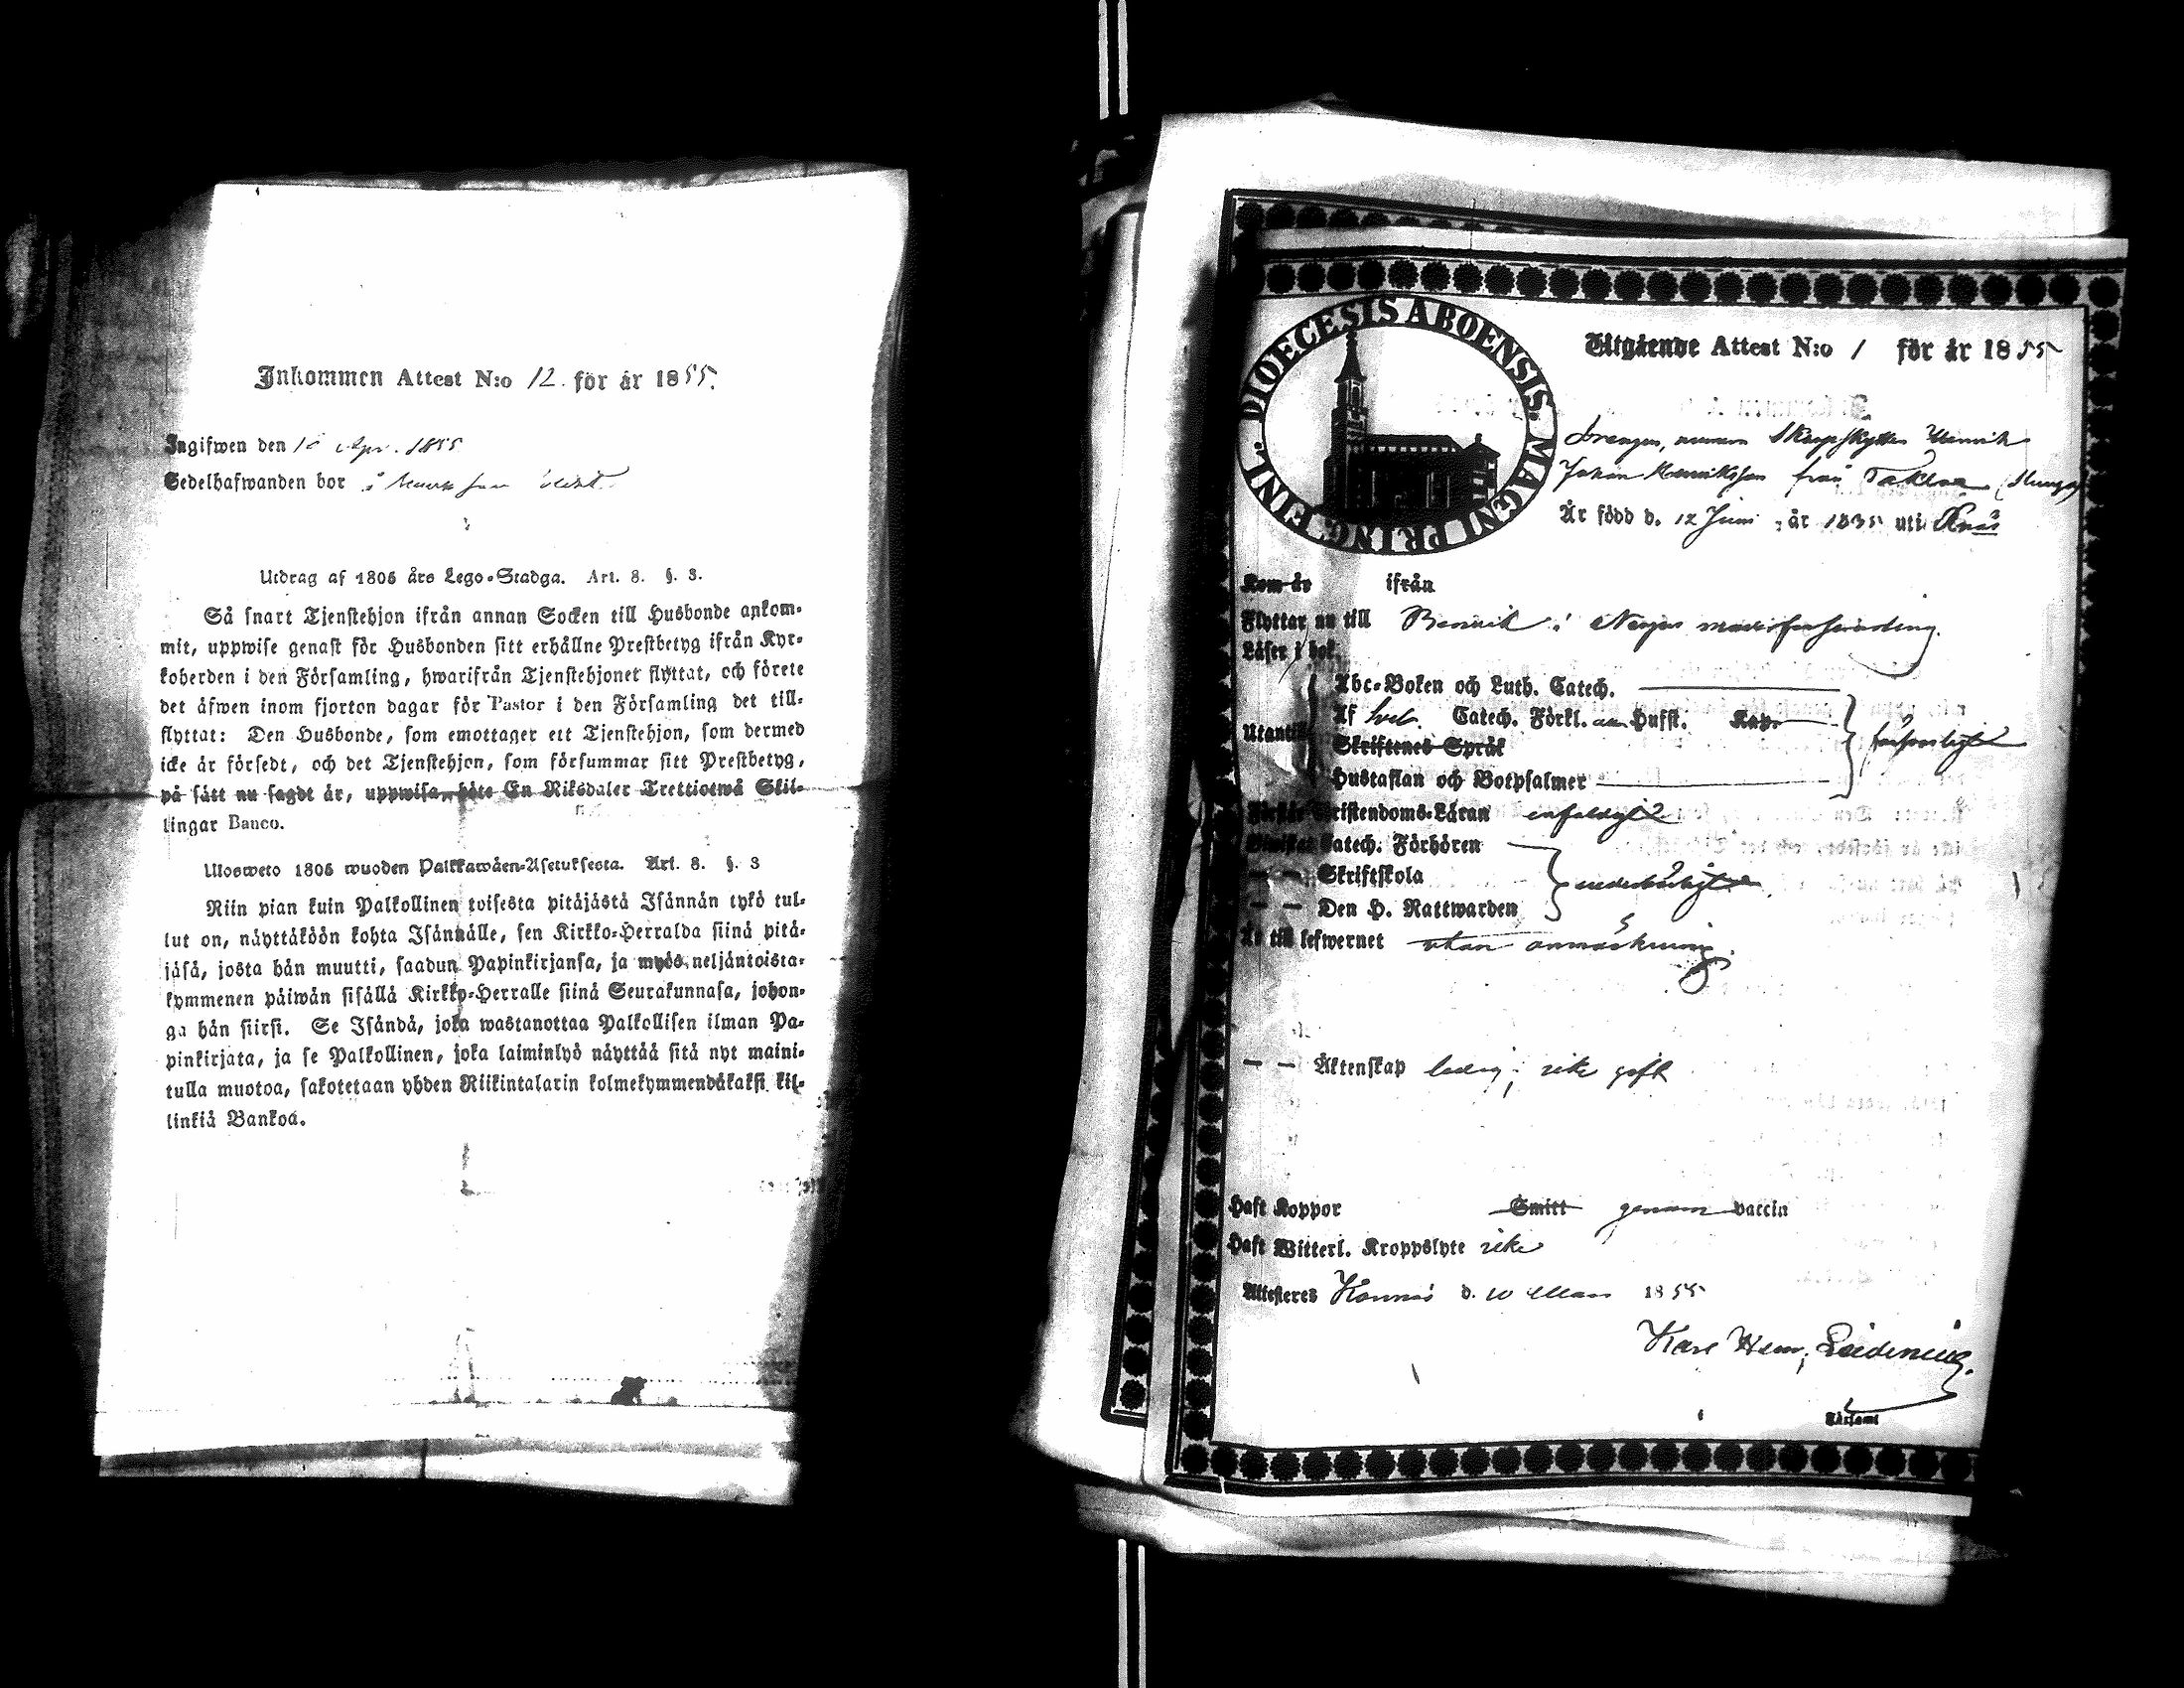 Inkommen Attest N:o 12. för år 1855.
Ingifwen den Apr. 1855
Sedelhafwanden bor
Utdrag af 1805 års Lego-Stadga. Art. 8. §. 3.
Så snart Tjenstehjon ifrån annan Socken till Husbonde ankom-
mit, uppwise genast för Husbonden sitt erhållne Prestbetyg ifrån Kyr-
koherden i den Församling, hwarifrån Tjenstehjonet flyttat, och förete
det äfwen inom fjorton dagar för Pastor i den Församling det till-
flyttat: Den Husbonde, som emottager ett Tjenstehjon, som dermed
icke är försedt, och det Tjenstehjon, som försummar sitt Prestbetyg,
på sätt nu sagdt är, uppwisa, böte En Riksdaler Trettiotwå Skil-
lingar Banco.
Ulosweto 1805 wuoden Palkkawäen-Asetuksesta. Art. 8. §. 3
Niin pian kuin Palkollinen toisesta pitäjästä Isännän tykö tul-
lut on, näyttäköön kohta Isännälle, sen Kirkko-Herralda siinä pitä-
jäsä, josta hän muutti, saadun Papinkirjansa, ja myös neljäntoista-
kymmenen päiwän sisällä Kirkko-Herralle siinä Seurakunnasa, johon-
ga hän siirsi. Se Isändä, joka wastanottaa Palkollisen ilman Pa-
pinkirjata, ja se Palkollinen, joka laiminlyö näyttää sitä nyt maini-
tulla muotoa, sakotetaan yhden Riikintalarin kolmekymmendäkaksi kil-
linkiä Bankoa.
DIOECESIS ABOENSIS. MAGNI PRINC. FINL.
Utgående Attest N:o 1 för år 1855
Drengen, numera Skarpskytten Henrik
Johan Henriksson från
Är född d. 12 Juni år 1835 uti
Kom år ifrån
Flyttar nu till
Läser i bok
Abc-Boken och Luth. Catech.
Utantill Af Catech. Förkl. Hufst. Kap.
Skriftenes Språk försvarligt
Hustaflan och Botpsalmer
Förstår Christendoms-Läran enfaldigt
Bewistat Catech. Förhören
— — Skriftskola
— — Den H. Nattwarden
Är till lefwernet utan anmärkning
— — Äktenskap ledig, icke gift
Haft Koppor Smitt genom vaccin
Haft Witterl. Kroppslyte icke
Attesteres d. 10 Mars 1855
Karl Henr.